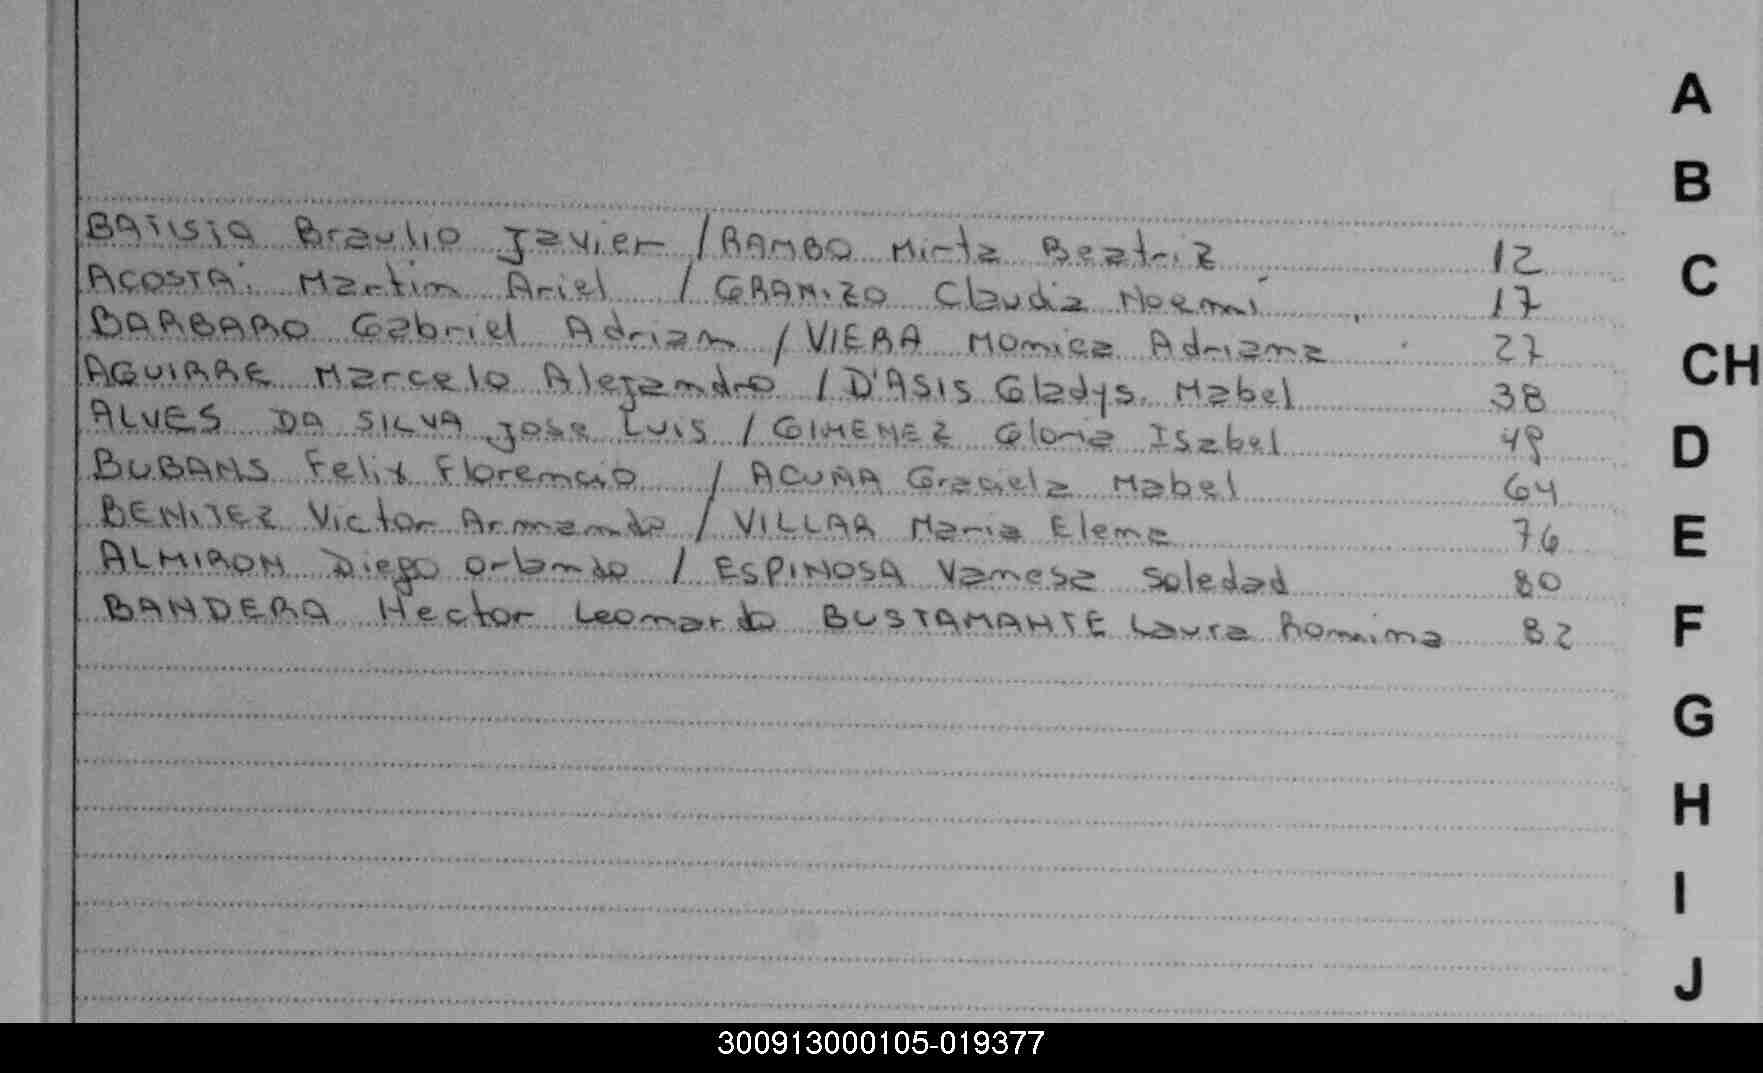 BATISTA Braulio Javier / RAMBO Mirta Beatriz 12
ACOSTA Martin Ariel / GRANIZO Claudia Noemí 17
BARBARO Gabriel Adrian / VIERA Monica Adriana 27
AGUIRRE Marcelo Alejandro / D'ASIS Gladys Mabel 38
ALVES DA SILVA Jose Luis / GIMENEZ Gloria Isabel 49
BUBANS Felix Florencio / ACUÑA Graciela Mabel 64
BENITEZ Victor Armando / VILLAR Maria Elena 76
ALMIRON Diego Orlando / ESPINOSA Vanesa Soledad 80
BANDERA Hector Leonardo BUSTAMANTE Laura Romina 82
A
B
C
CH
D
E
F
G
H
I
J
300913000105-019377